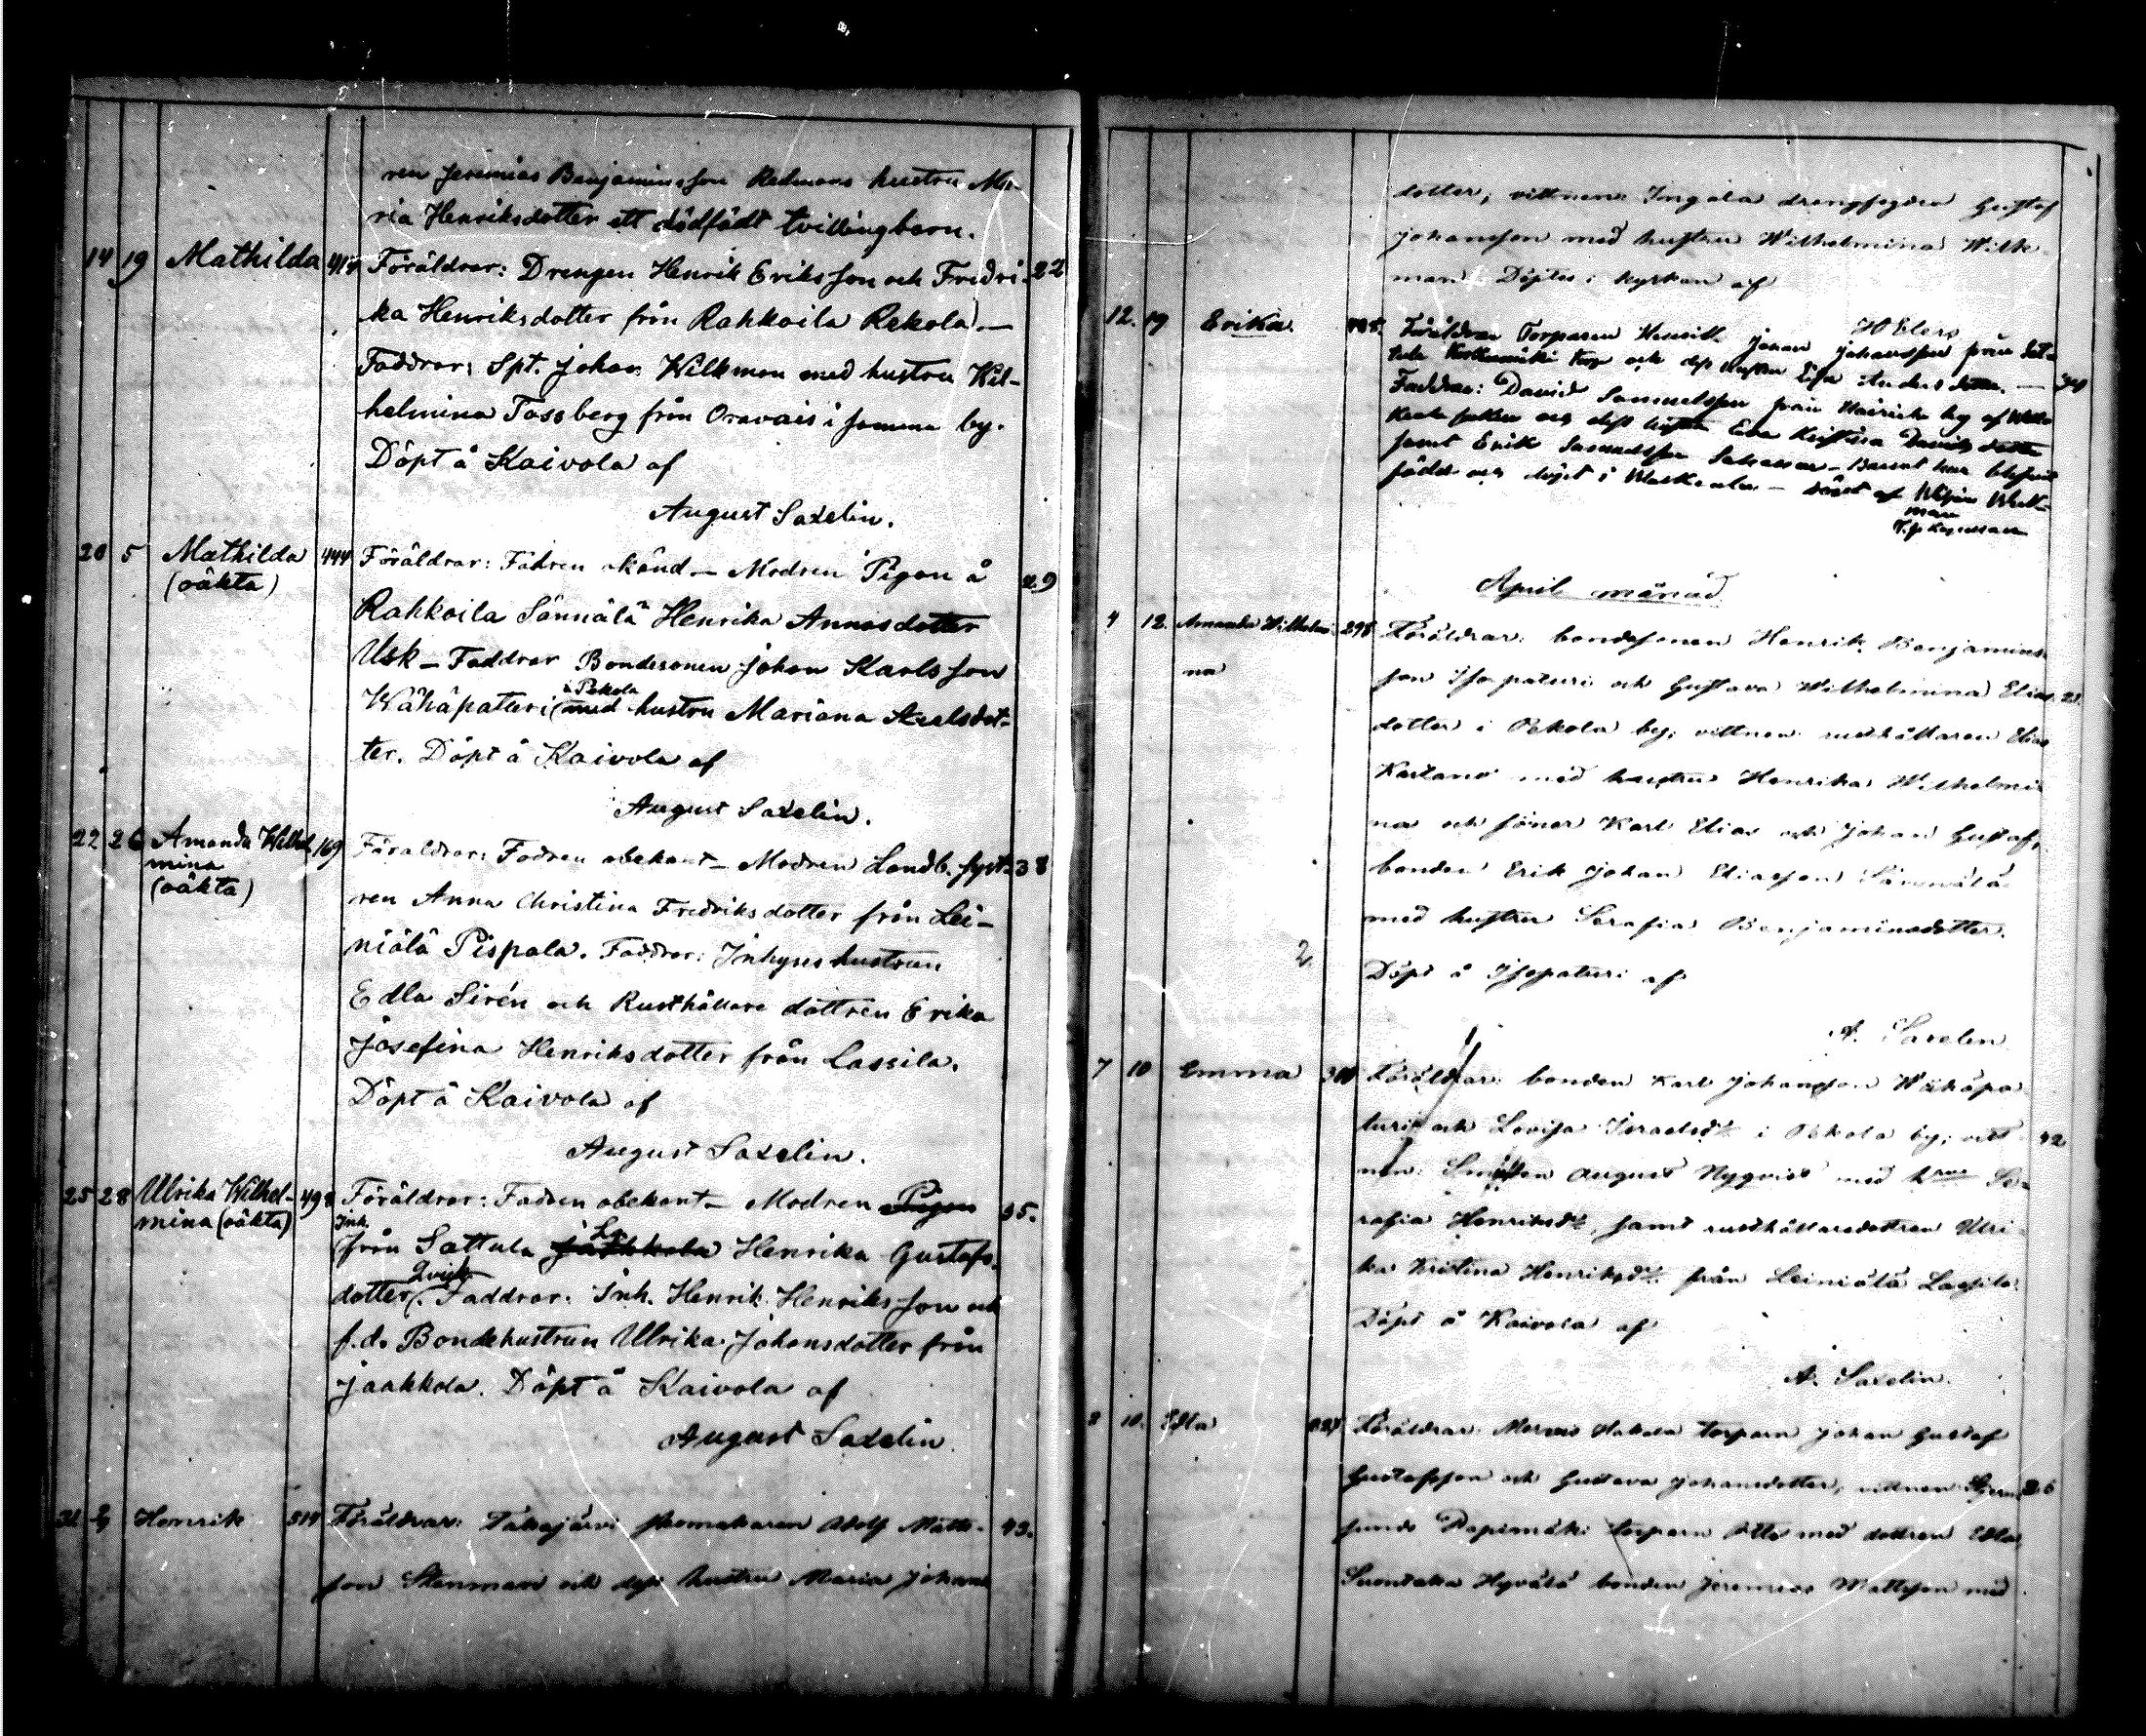 ren Jeremias Benjaminsson Redmans hustru Ma-
ria Henriksdotter ett dödfödt tvillingbarn.
14 19 Mathilda Föräldrar: Drengen Henrik Eriksson och Fredri- 22
ka Henriksdotter från Rahkoila Rekola.—
Faddrar: Spt. Johan Wilkman med hustru Wil-
helmina Tassberg från Oravais i samma by.
Döpt å Kaivola af
August Saxelin.
20 5 Mathilda 444 Föräldrar: Fadren okänd — Modren Pigan å 29
(oäkta)
Rahkoila Sännälä Henrika Annasdotter
Usk — Faddrar Bondesonen Johan Karlsson
å Pekola
Wähäpatteri med hustru Mariana Axelsdot-
ter. Döpt å Kaivola af
August Saxelin.
22 26 Amanda Wilhel- 169 Föräldrar: Fadren obekant — Modren Landb. syst- 38
mina
(oäkta)
ren Anna Christina Fredriksdotter från Lei-
niälä Pispala. Faddrar: Inhyses hustrun
Edla Sirén och Rusthållare dottren Erika
Josefina Henriksdotter från Lassila.
Döpt å Kaivola af
August Saxelin.
25 28 Ulrika Wilhel- 498 Föräldrar: Fadren obekant — Modren Pigan 35.
mina (oäkta)
Inh.
från Sattula Jaakkola Henrika Gustafs-
Qvick
dotter. Faddrar: Inh. Henrik Henriksson och
f.d. Bondehustrun Ulrika Johansdotter från
Jaakkola. Döpt å Kaivola af
August Saxelin.
31 Henrik 514 Föräldrar: Takajärvi skomakaren Adolf Matts- 43.
son Stenman och dess hustru Maria Johans
dotter, vittnen: Ingala drengsysten Gustaf
Johansson med hustru Wilhelmina Wilk-
man. Döptes i kyrkan af
12. 19 Erika. Föräldrar Torparen Johan Johansson från Sat-
tula torp och dess hustru Eva Andersdotter. —
Faddrar: David Samuelsson från by af
och dess hustru Eva Davidsdotter
samt Erik Samuelsson — Barnet har blifvit
född och döpt i — döpt af
man
April månad.
4 12. Amanda Wilhelmi- 298 Föräldrar: bondesonen Henrik Benjamins-
na
son Isopaturi och Gustava Wilhelmina Elias- 21.
dotter i Pekola by; vittnen rusthållaren Elias
Kartano med hustru Henrika Wilhelmi-
na och söner Karl Elias och Johan Gustaf,
bonden Erik Johan Eliasson Sännälä
med hustru Serafia Benjaminsdotter.
Döpt å Isopaturi af
A. Saxelin
7 10 Emma Föräldrar: bonden Karl Johansson Wähäpa-
turi och Lovisa Israelsdr i Pekola by; vitt- 42
nen: Smeden August Nyqvist med hrun Se-
rafia Henriksdr, samt rusthållaredottren Ulri-
ka Kristina Henriksdr från Leiniälä Lassila.
Döpt å Kaivola af
A. Saxelin.
8 10. Edla Föräldrar: Mervi Hakola torparn Johan Gustaf
Gustafsson och Gustava Johansdotter, vittnen: 26
sunds Rapimäki torparn Otto med dottren Edla,
Suontaka Hyvälä bonden Jeremias Mattsson med